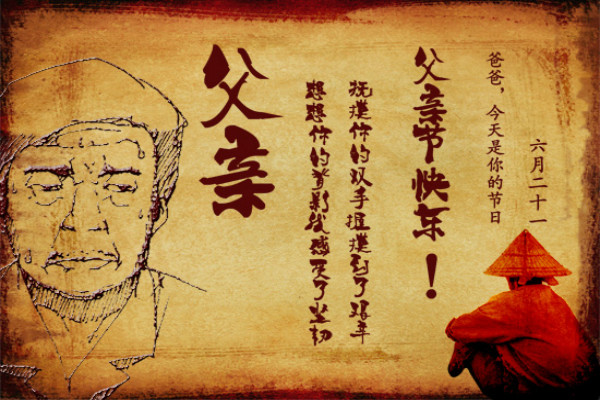 父亲
想想你的背影我感受了坚韧
抚摸你的双手握摸到了艰辛
父亲节快乐！
爸爸，今天是你的节日
六月二十一